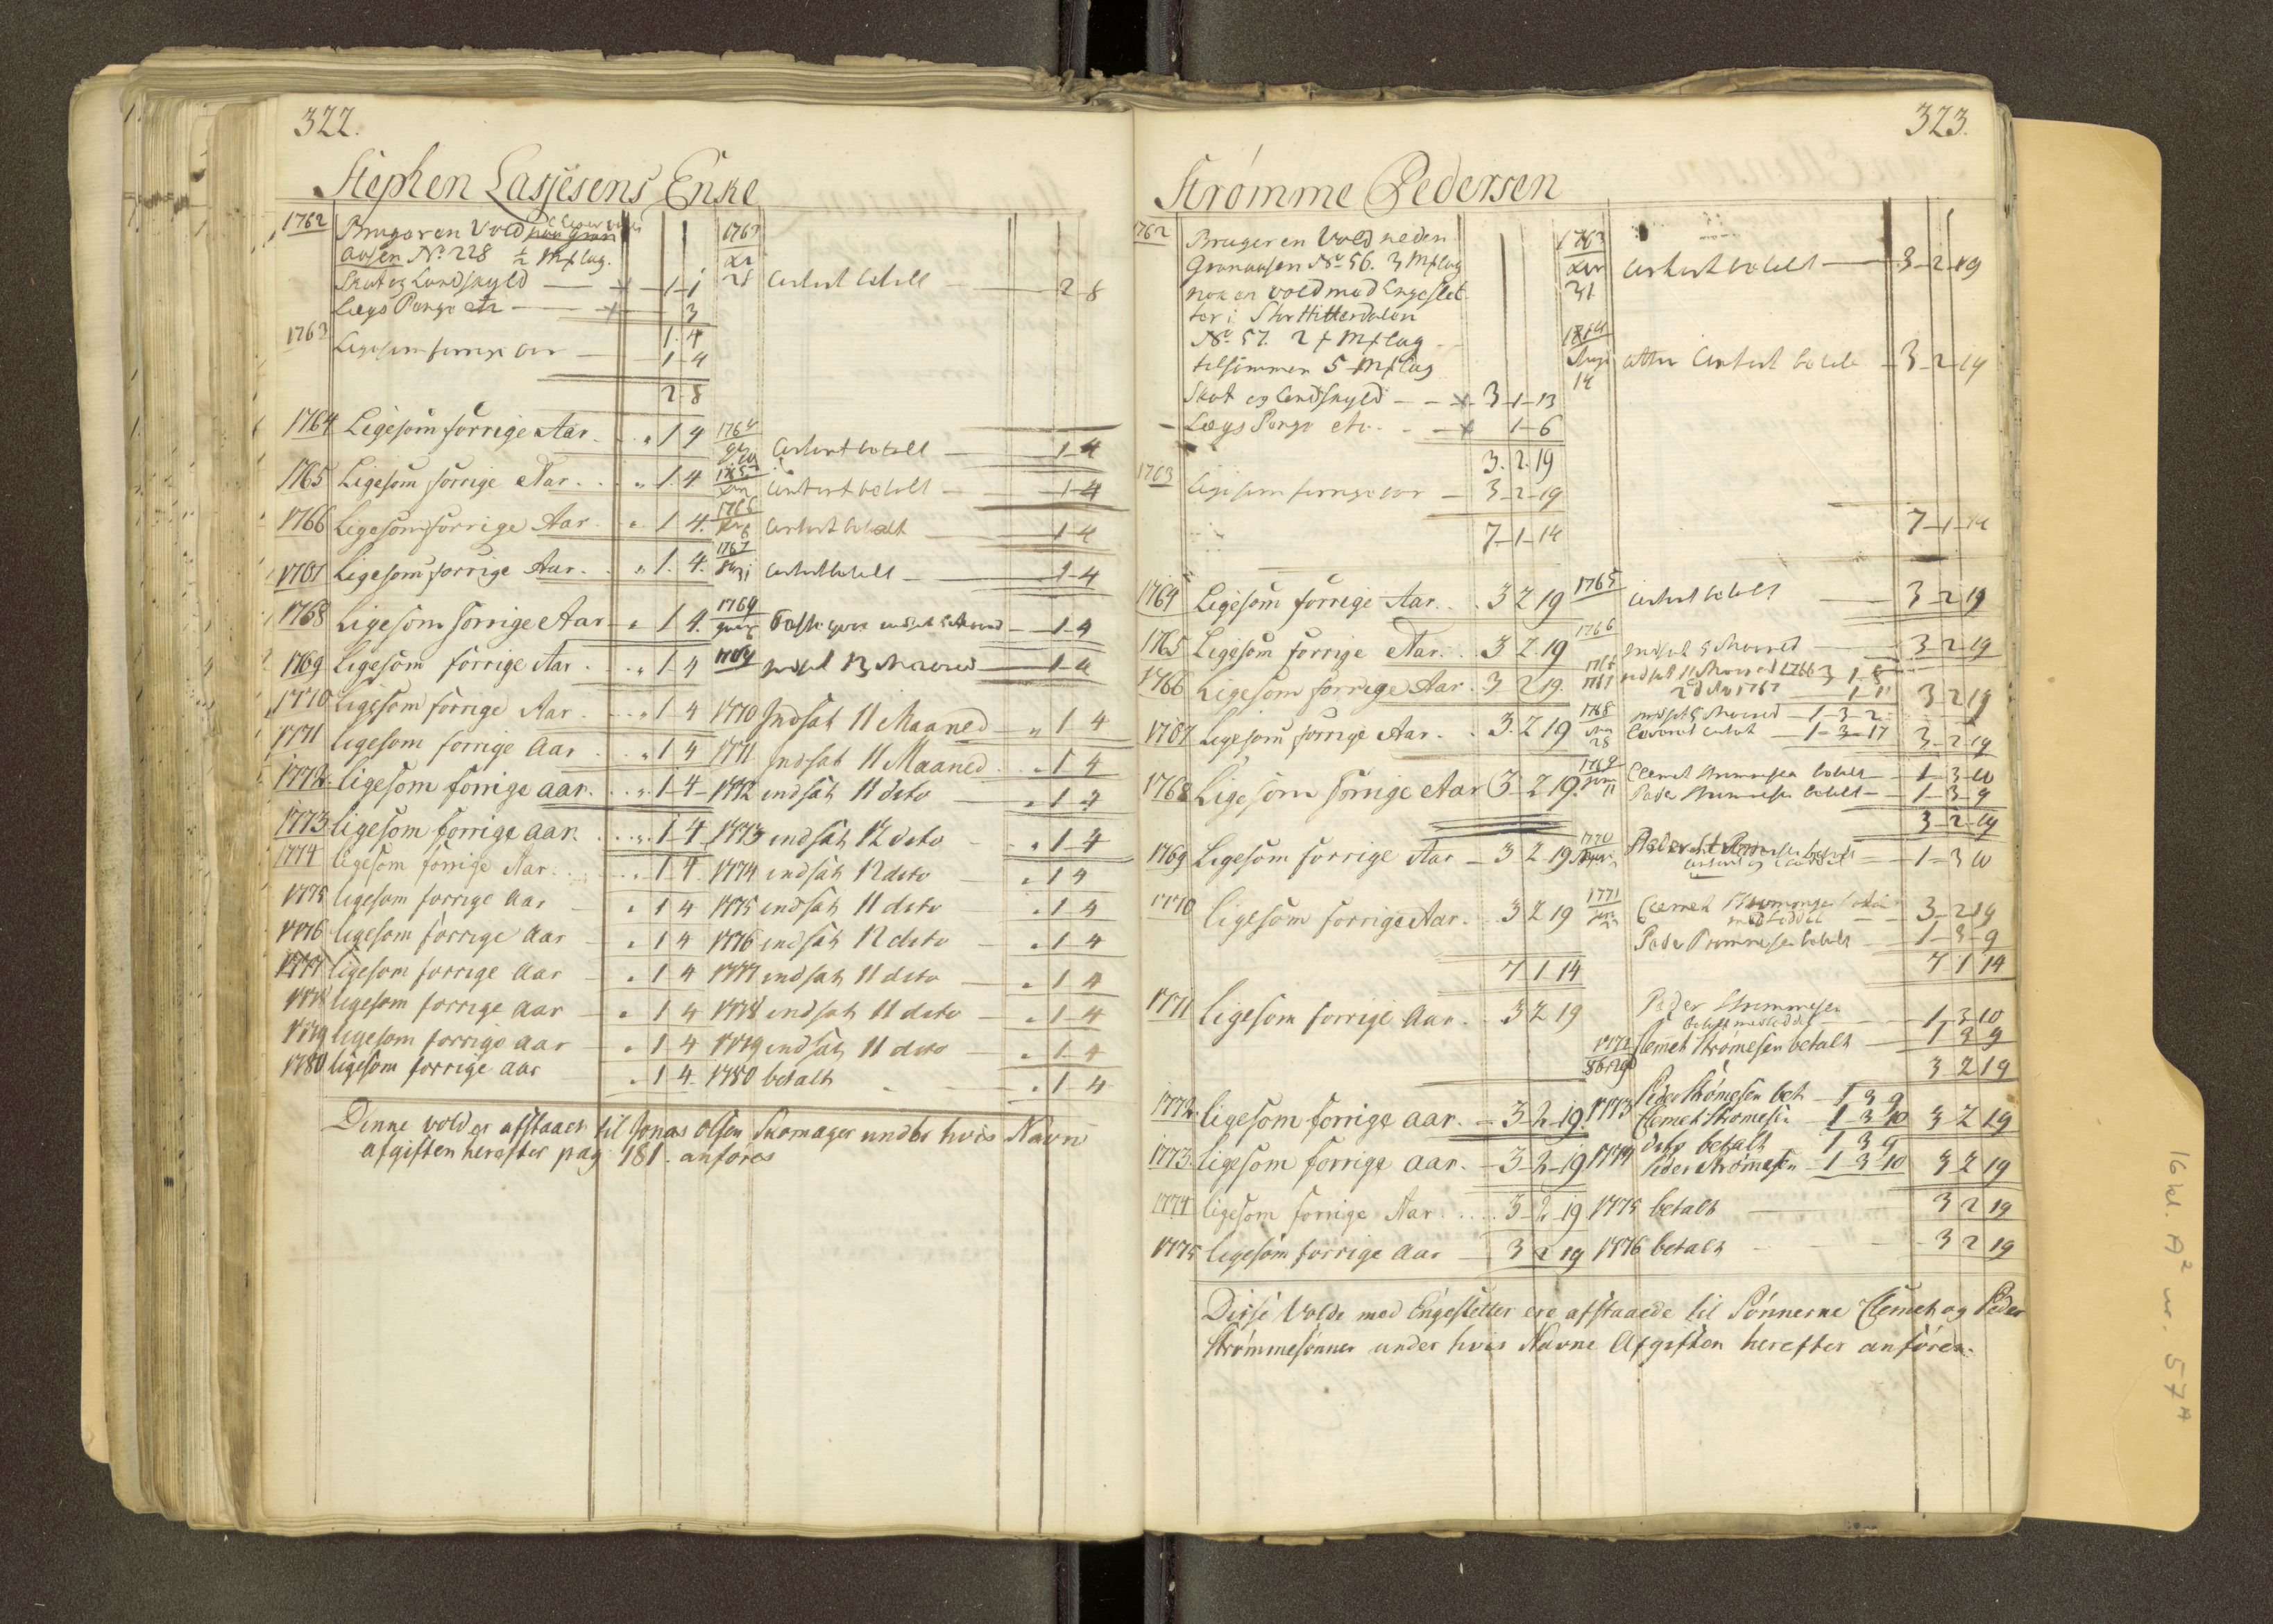 322.
Stephen Lassesens Enke
1762 Bruger en Vold
aasen No. 228 ½ Mæhlag.
Skat og Landskyld — 1-1
Lægs Penge etc — 3
1.4
1763 Ligesom forrige aar — 1-4
2-8
1764 Ligesom forrige Aar. . „ 1 4
1765 Ligesom forrige Aar. . . „ 1 4
1766 Ligesom forrige Aar. „ 1 4.
1767 Ligesom forrige Aar. . „ 1. 4.
1768 Ligesom forrige Aar „ 1 4.
1769 Ligesom forrige Aar . . „ 1 4
1770 Ligesom forrige Aar . . . „ 1 4
1771 ligesom forrige Aar . . „ 1 4
1772 ligesom forrige aar. . . „ 1-4
1773 ligesom forrige aar. . . . „ 1-4
1774 ligesom forrige Aar. . . . 1 4
1775 ligesom forrige Aar — „ 1 4
1776 ligesom forrige aar — „ 1 4
1777 ligesom forrige aar — „ 1 4
1778 ligesom forrige aar — „ 1 4
1779 ligesom forrige aar — „ 1 4
1780 ligesom forrige aar „ 1 4
1763
28 Contant betalt — 2-8
1764 Contant betalt — 1-4
1765 Contant betalt — 1-4
1766 Contant betalt — 1-4
1767 Contant betalt — 1-4
1769 — 1-4
1769 indsat 13 Maaned — 1-4
1770 Indsat 11 Maaned — „ 1 4
1771 Indsat 11 Maaned . „ 1 4
1772 indsat 11 dito — „ 1-4
1773 indsat 12 dito — „ 1-4
1774 indsat 12 dito — „ 1 4
1775 indsat 11 dito — „ 1-4
1776 indsat 12 dito — „ 1-4
1777 indsat 11 dito — „ 1 4
1778 indsat 11 dito — „ 1-4
1779 indsat 11 dito — „ 1-4
1780 betalt — „ 1 4
Denne vold er afstaaet til Jonas Olsen Skomager under hvis Navn
afgiften herefter pag 181. anføres
323.
Strømme Pedersen
1762 Bruger en Vold neden
Granaasen No. 56. 3 Mæhlag
nok en vold med Engeslet-
ter i Stor Hitterdalen
No. 57. 2 Mæhlag
tilsammen 5 Mæhlag
Skat og Landskyld — 3-1-13
Lægs Penge etc. — 1-6
3. 2. 19
1763 ligesom forrige aar — 3-2-19
7-1-14
1764 Ligesom forrige Aar. . . 3 2 19
1765 Ligesom forrige Aar. . 3 2 19
1766 Ligesom forrige Aar. 3 2 19.
1767 Ligesom forrige Aar. . 3. 2 19
1768 Ligesom forrige Aar 3 2 19.
1769 Ligesom forrige Aar — 3 2 19
1770 ligesom forrige Aar. . 3 2 19
7 1 14
1771 ligesom forrige Aar. . 3 2 19
1772 ligesom forrige aar. — 3-2-19.
1773. ligesom forrige aar. — 3-2-19
1774 ligesom forrige Aar. . . . 3-2-19
1775 ligesom forrige Aar — 3 2 19
1763
31 Contant betalt — 3-2-19
1764
14 atter Contant betalt — 3-2-19
7-1-14
1765 Contant betalt — 3-2-19
1766 indsat 5 Maaned — 3-2-19
1766 indsat 11 Maaned 1766 3 1-8
1767 2 d Ao 1767 1-11 3 2 19
1768 indsat 5 Maaned — 1-3-2
28 Contant — 1-3-17 3-2-19
1769 Clemet Strømmesen betalt — 1-3-10
Peder Strømmesen betalt — 1-3-9
3-2-19
1770 1-3 10
1771 Clemet Strømmesen betalt
3-2-19
Peder Strømmesen betalt — 1-3-9
7 1 14
Peder Strømmesen
1-3-10
1772 Clemet Strømesen betalt — 1 3 9
3 2 19
1773 Peder Strømesen bet — 1 3 9
Clemet Strømesen — 1-3-10 3 2 19
1774 dito betalt 1 3 9
Peder Strømmesen — 1 3 10 3 2 19
1775 betalt — 3 2 19
1776 betalt — 3 2 19
Disse Volde med Engesletter ere afstaaede til Sønnerne Clemet og Peder
Strømmesønner under hvis Navne Afgiften herefter anføres.
16 kl. A² nr. 57 A